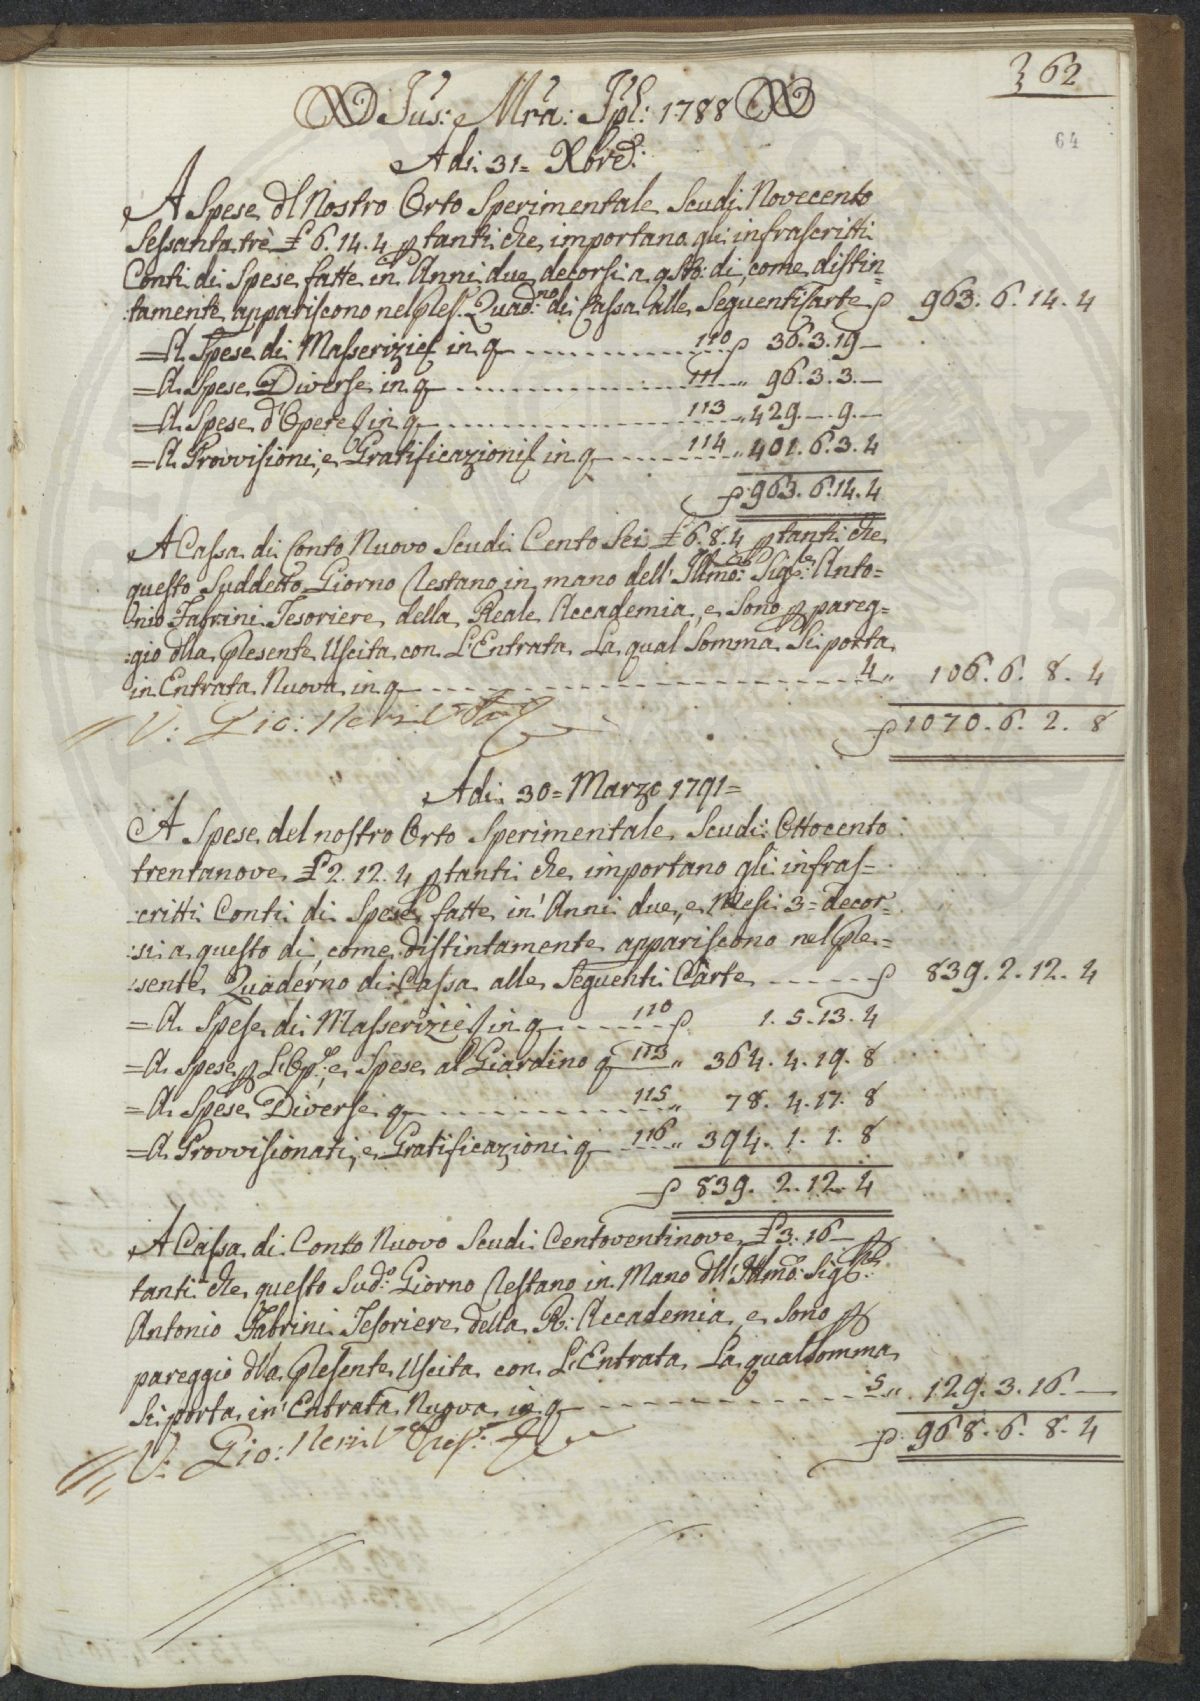 362
64
Jus: Mra: Jpl: 1788
Adi. 31= Xbre:
A Spese dl Nostro Orto Sperimentale Scudi Novecento
Sessanta trè £ 6. 14. 4 p tanti che importano gli infrascritti
Conti di Spese fatte in Anni due decorsi a qsto: di, come distin=
:tamente appariscono nel Pres. Quad:no di Cassa alle Seguenti Carte 963. 6. 14. 4
=A Spese di Masserizie in q 110 36. 3. 19—
=A Spese Diverse in q 111 „ 96. 3. 3.—
=A Spese d'Opere in q 113 „ 429.—. 9.—
=A Provvisioni, e Gratificazioni in q 114 „ 401. 6. 3. 4
963. 6. 14. 4
A Cassa di Conto Nuovo Scudi Cento Sei £ 6. 8. 4 p tanti che
questo Suddetto Giorno Restano in mano dell' Illmo: Sigre: Anto=
:nio Fabrini Tesoriere della Reale Accademia, e Sono p pareg=
:gio dlla Presente Uscita con L'Entrata La qual Somma Si porta
in Entrata Nuova in q 4 „ 106. 6. 8. 4
V: Gio: Neri
1070. 6. 2. 8
Adi. 30= Marzo 1791=
A Spese del nostro Orto Sperimentale Scudi Ottocento
trentanove £ 2. 12. 4 p tanti che importano gli infras=
:critti Conti di Spese fatte in' Anni due, e Mesi 3= decor=
:si a questo di, come distintamente appariscono nel Pre=
:sente Quaderno di Cassa alle Seguenti Carte 839. 2. 12. 4
=A Spese di Masserizie in q 110 1. 5. 13. 4
=A Spese p L'Op:e, e Spese al Giardino q 113 „ 364. 4. 19. 8
=A Spese Diverse q 115 „ 78. 4. 17. 8
=A Provvisionati, e Gratificazioni q 116 „ 394. 1. 1. 8
839. 2. 12. 4
A Cassa di Conto Nuovo Scudi Centoventinove £ 3. 16— p
tanti che questo Sud:o Giorno Restano in Mano dll' Illmo: Sigre:
Antonio Fabrini Tesoriere della R: Accademia, e Sono p
pareggio dlla Presente Uscita con L'Entrata La qual somma
Si porta in' Entrata Nuova in q 5 „ 129. 3. 16.—
V: Gio: Neri
968. 6. 8. 4